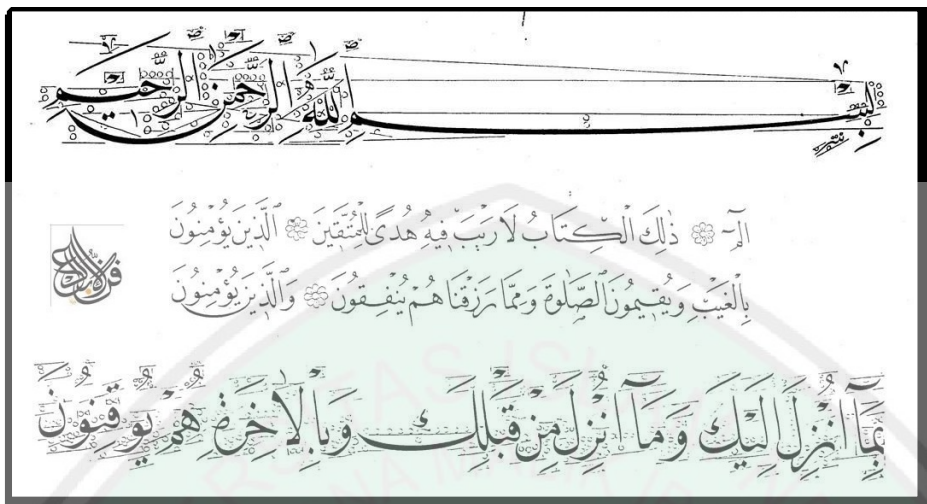 بِسْمِ اللّٰهِ الرَّحْمٰنِ الرَّحِيْمِ
الٓمٓ ۞ ذٰلِكَ الْكِتَابُ لَا رَيْبَ فِيْهِ هُدًى لِلْمُتَّقِيْنَ ۞ الَّذِيْنَ يُؤْمِنُوْنَ
بِالْغَيْبِ وَيُقِيْمُوْنَ الصَّلٰوةَ وَمِمَّا رَزَقْنَاهُمْ يُنْفِقُوْنَ ۞ وَالَّذِيْنَ يُؤْمِنُوْنَ
بِمَآ اُنْزِلَ اِلَيْكَ وَمَآ اُنْزِلَ مِنْ قَبْلِكَ وَبِالْاٰخِرَةِ هُمْ يُوْقِنُوْنَ